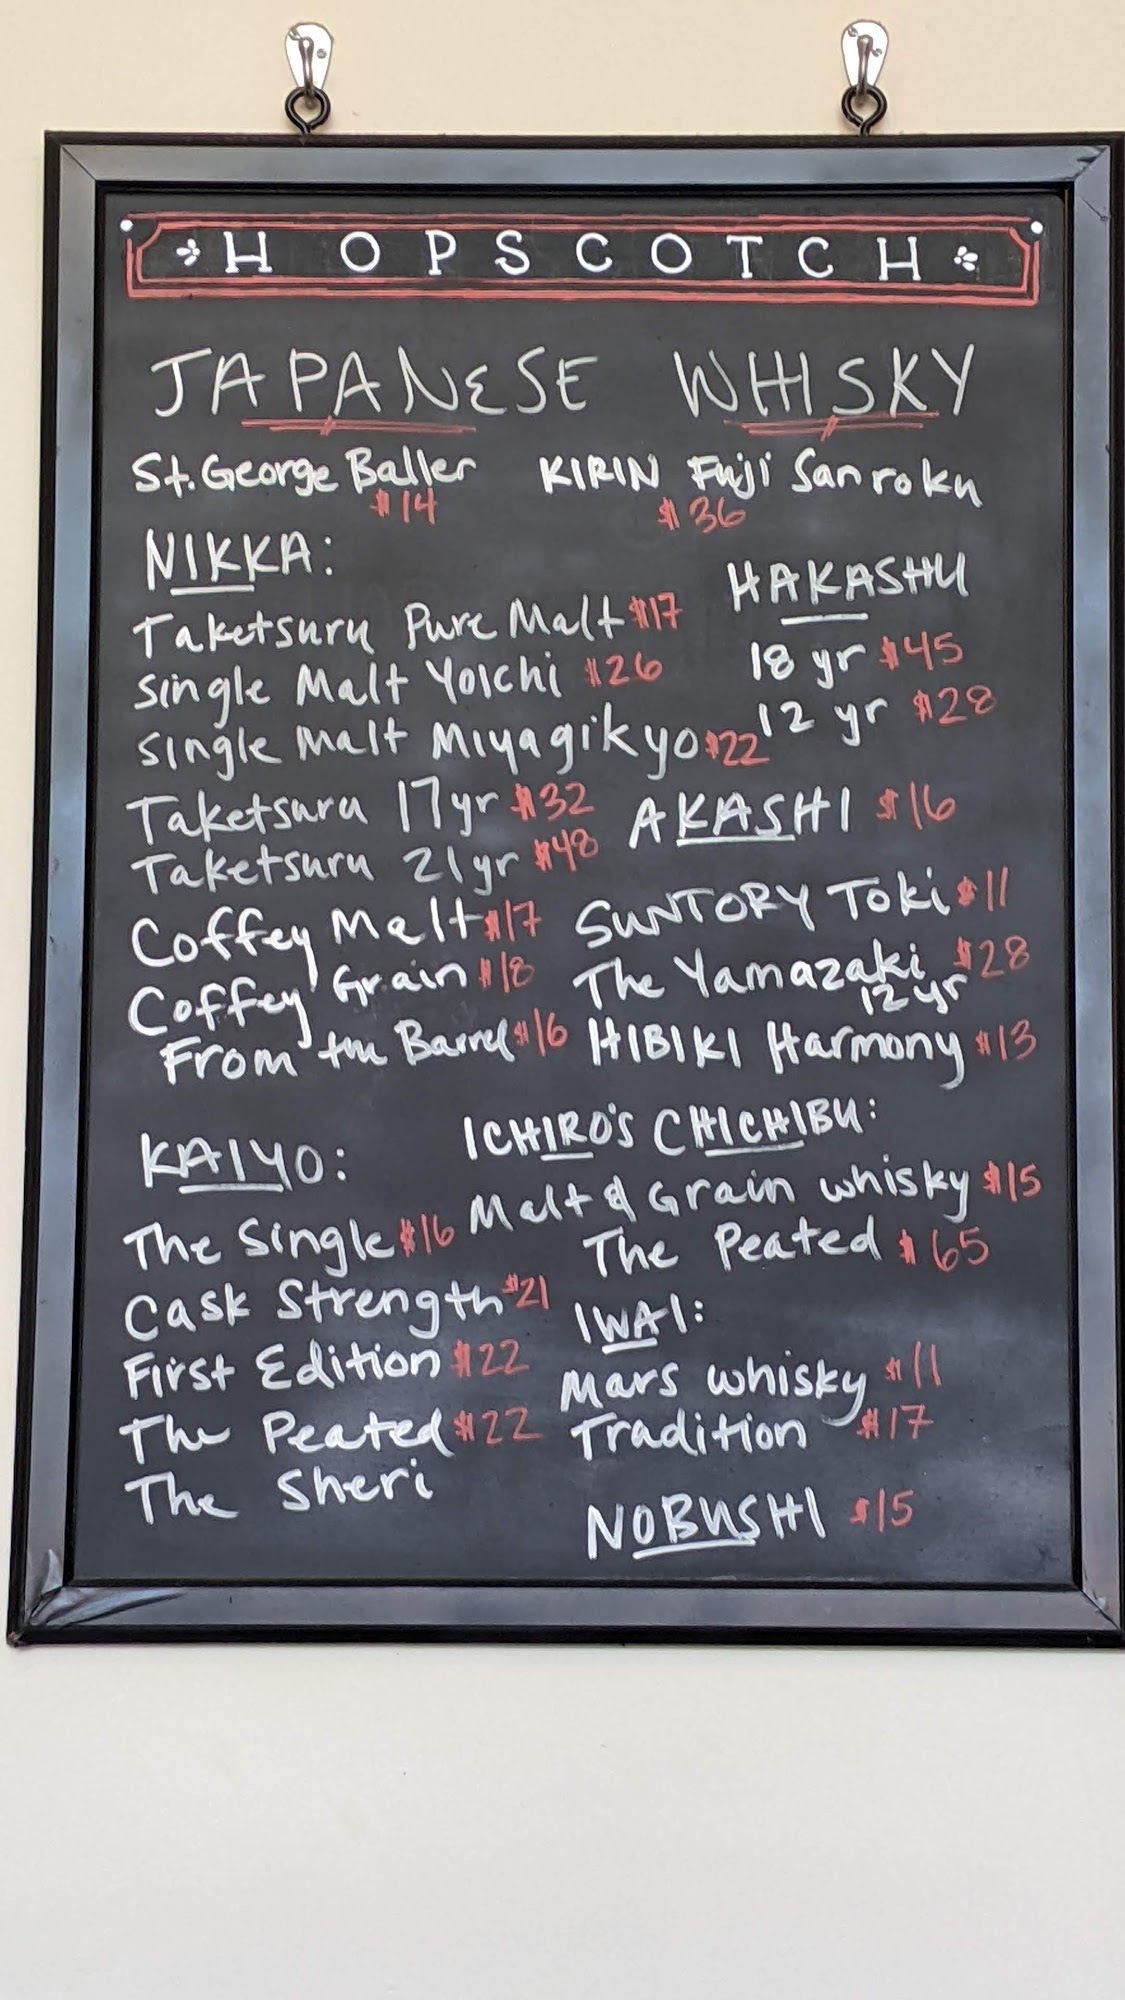 HOPSCOTCH
JAPANESE WHISKY
St. George Baller
$14
KIRIN Fuji Sanroku
$36
NIKKA:
Taketsuru Pure Malt $17
Single Malt Yoichi $26
Single Malt Miyagikyo $22
Taketsuru 17yr $32
Taketsuru 21yr $48
Coffey Malt $17
Coffey Grain $18
From the Barrel $16
HAKASHU
18 yr $45
12 yr $28
AKASHI $16
SUNTORY Toki $11
The Yamazaki $28
12 yr
HIBIKI Harmony $13
KAIYO:
The Single $16
Cask Strength $21
First Edition $22
The Peated $22
The Sheri
ICHIRO'S CHICHIBU:
Malt & Grain whisky $15
The Peated $65
IWAI:
Mars whisky $11
Tradition $17
NOBUSHI $15